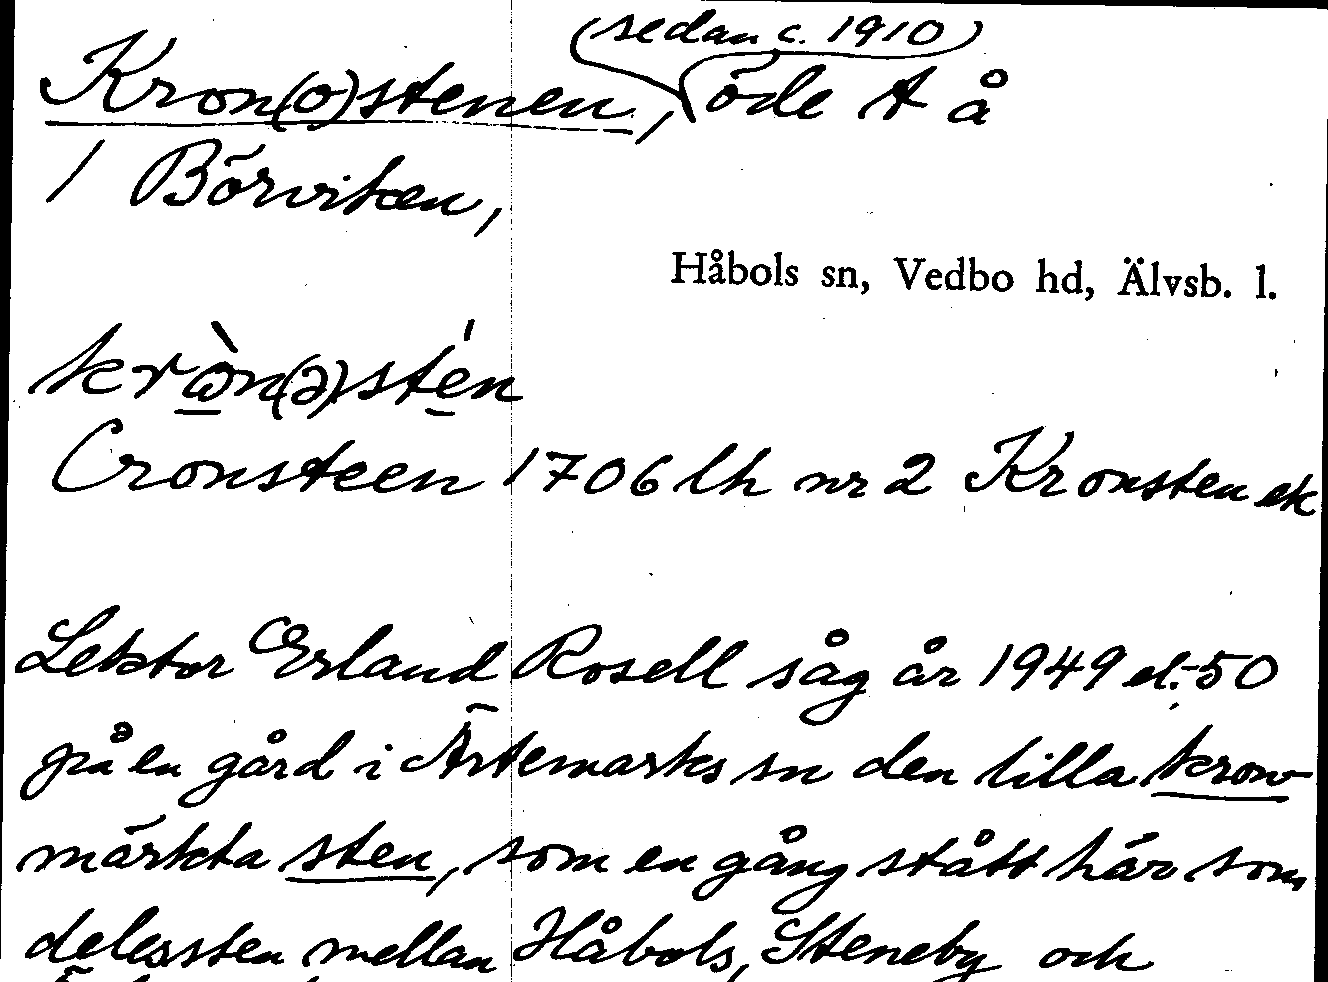 (sedan c. 1910)
Kron(o)stenen, öde t å
1 Börviken,
Håbols sn, Vedbo hd, Älvsb. l.
Cronsteen 1706 lh nr 2 Kronsten ek
Lektor Erland Rosell såg år 1949 el. 50
på en gård i Ärtemarks sn den lilla kron-
märkta sten, som en gång stått här som
delessten mellan Håbols, Steneby och